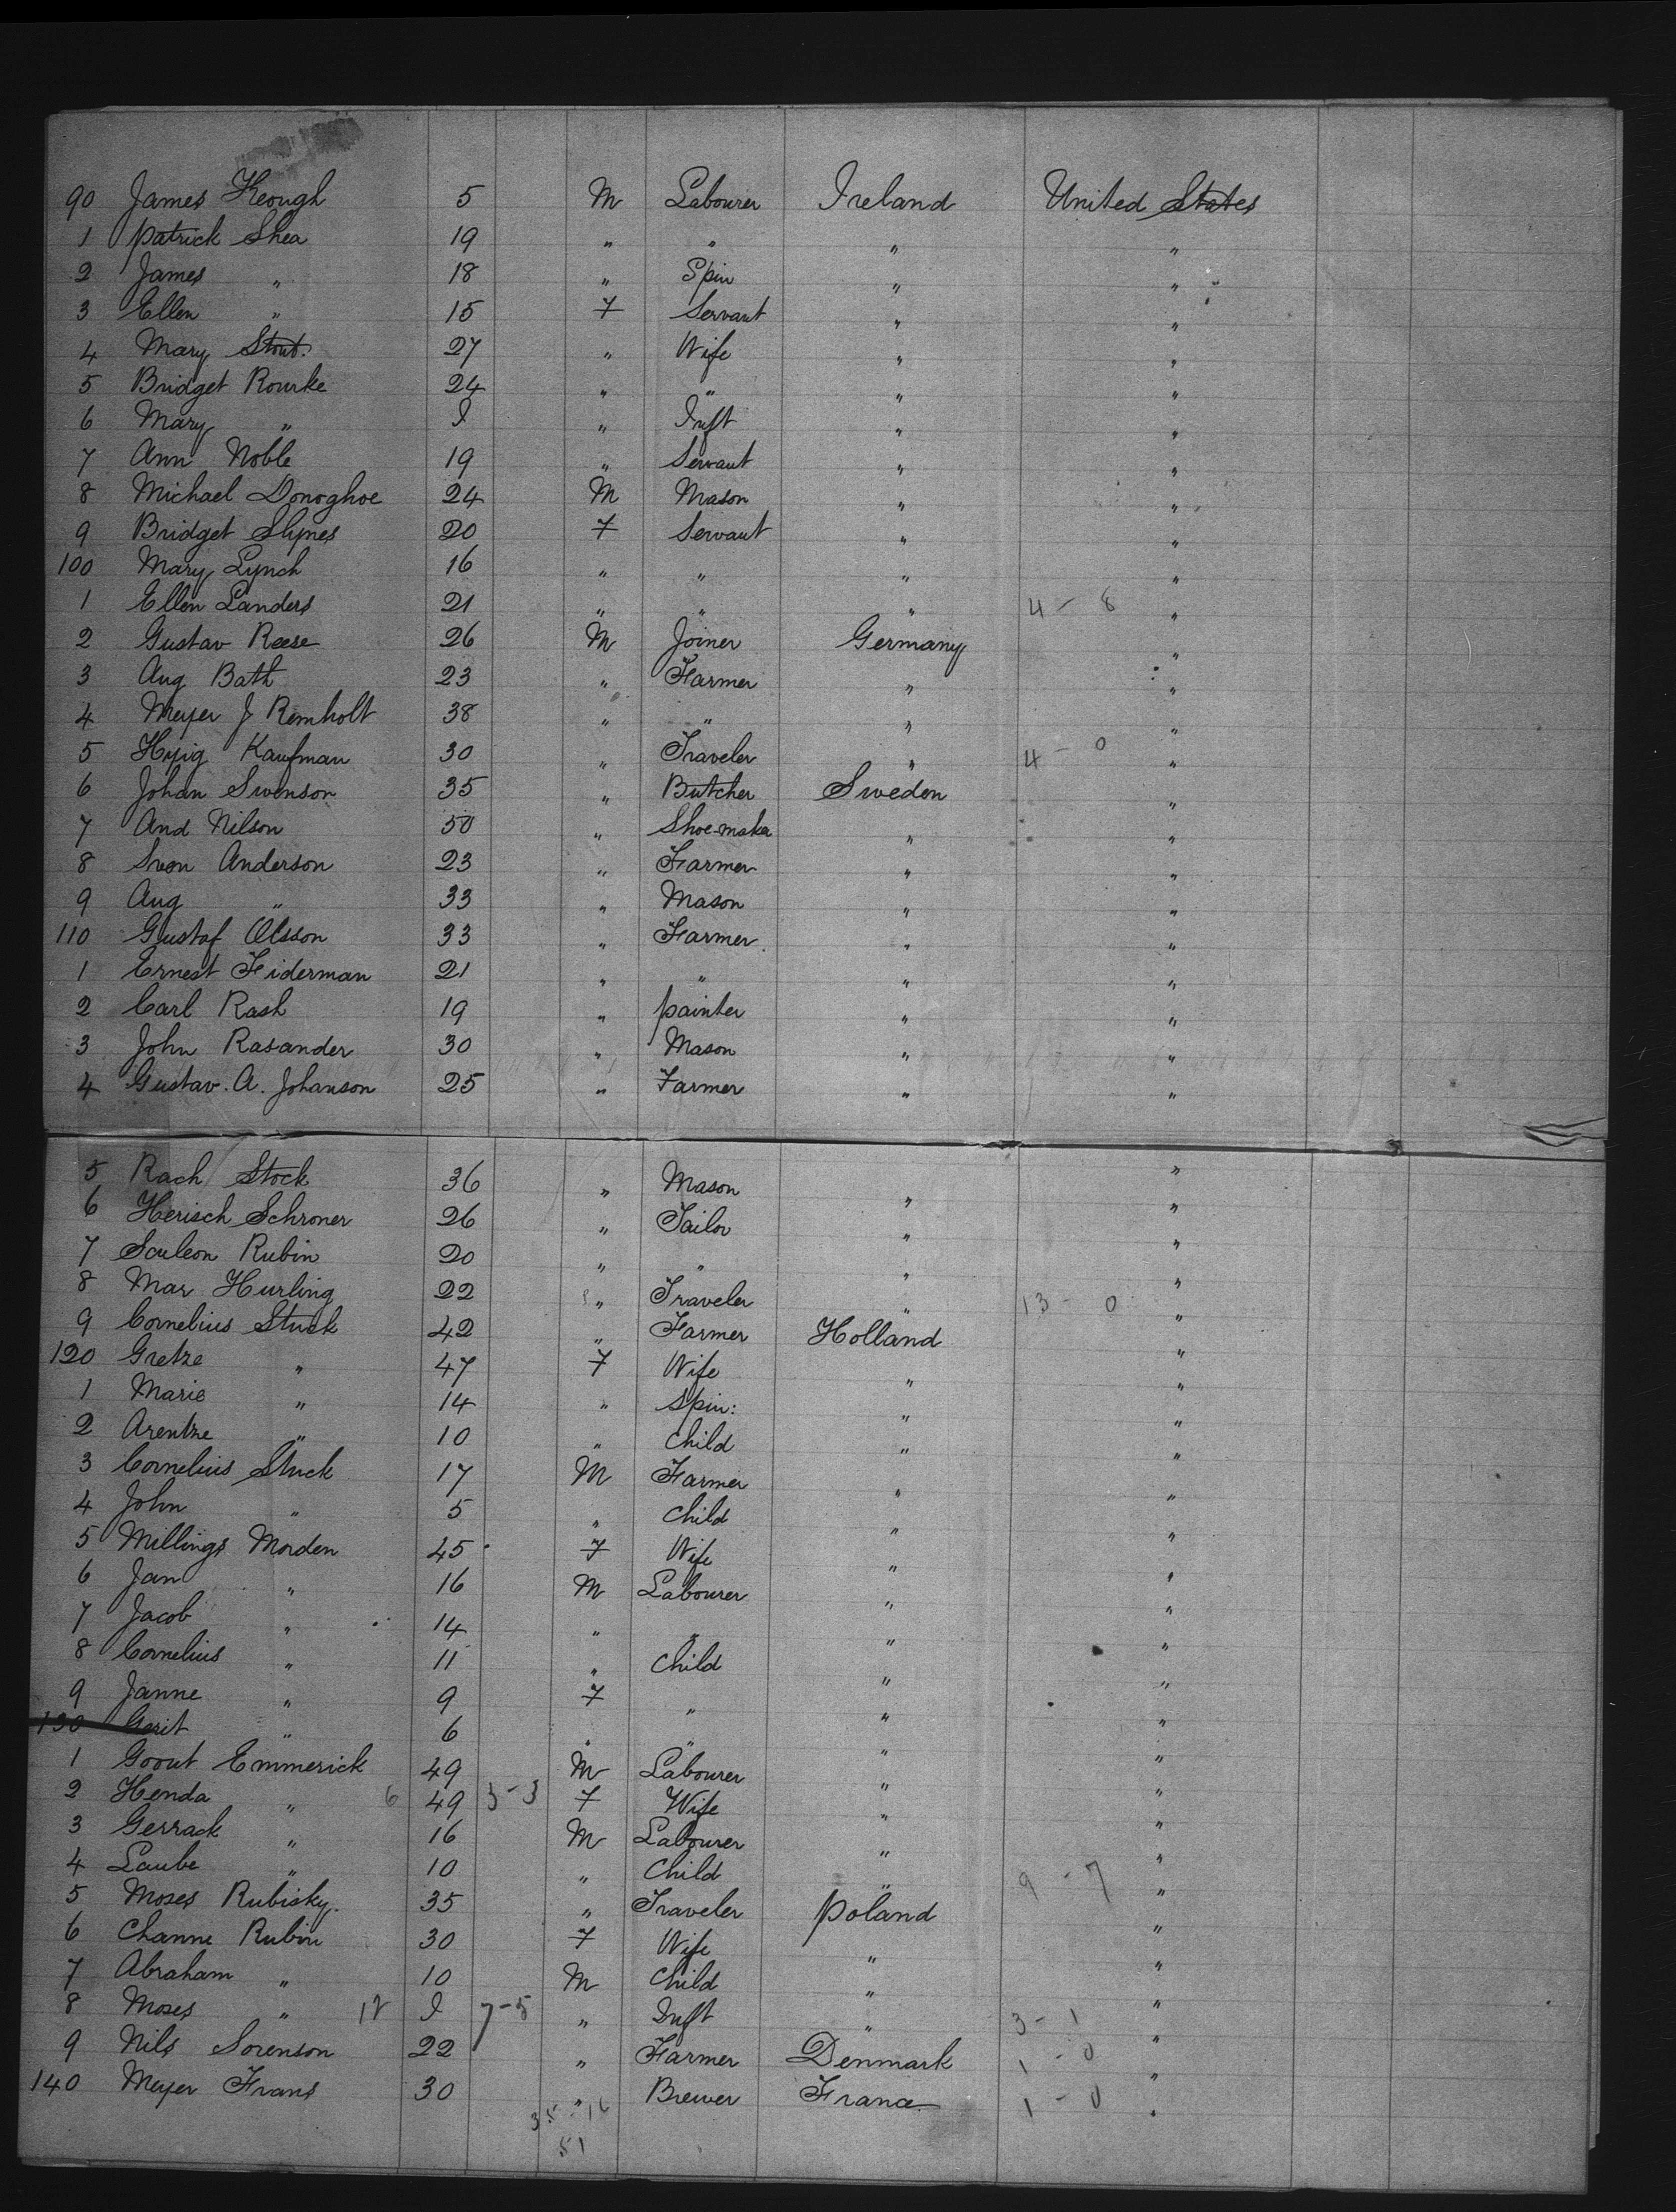 90 James Keough 5 M Labourer Ireland United States
1 Patrick Shea 19 " " " "
2 James " 18 " Spin " "
3 Ellen " 15 F Servant " "
4 Mary Stout. 27 " Wife " "
5 Bridget Rourke 24 " " " "
6 Mary " I " Inft " "
7 Ann Noble 19 " Servant " "
8 Michael Donoghoe 24 M Mason " "
9 Bridget Slynes 20 F Servant " "
100 Mary Lynch 16 " " " "
1 Ellen Landers 21 " " " 4 - 8 "
2 Gustav Reese 26 M Joiner Germany "
3 Aug Bath 23 " Farmer " "
4 Meyer J Remholt 38 " " " "
5 Hyig Kaufman 30 " Traveler " 4 - 0 "
6 Johan Swenson 35 " Butcher Sweden "
7 And Nilson 50 " Shoe-maker " "
8 Sven Anderson 23 " Farmer " "
9 Aug " 33 " Mason " "
110 Gustaf Olsson 33 " Farmer " "
1 Ernest Fiderman 21 " " " "
2 Carl Rash 19 " painter " "
3 John Rasander 30 " Mason " "
4 Gustav. A. Johanson 25 " Farmer " "
5 Rach Stock 36 " Mason " "
6 Herisch Schroner 26 " Tailor " "
7 Souleon Rubin 20 " " " "
8 Mar Hurling 22 " Traveler " 13 - 0 "
9 Cornelius Stuck 42 " Farmer Holland "
120 Gretze " 47 F Wife " "
1 Marie " 14 " Spin: " "
2 Arentze " 10 " Child " "
3 Cornelius Stuck 17 M Farmer " "
4 John " 5 " Child " "
5 Millings Morden 45 F Wife " "
6 Jan " 16 M Labourer " "
7 Jacob " 14 " " " "
8 Cornelius " 11 " Child " "
9 Janne " 9 F " " "
130 Gerit " 6 " " " "
1 Goout Emmerick 49 M Labourer " "
2 Henda " 6 49 3-3 F Wife " "
3 Gerrack " 16 M Labourer " "
4 Laube " 10 " Child " 9 - 7 "
5 Moses Rubisky. 35 " Traveler Poland "
6 Channe Rubin 30 F Wife " "
7 Abraham " 10 M Child " "
8 Moses " 12 I 7-5 " Inft " 3 - 1 "
9 Nils Sorenson 22 " Farmer Denmark 1 - 0 "
140 Meyer Frans 30 " Brewer France 1 - 0 "
35 - 16
51